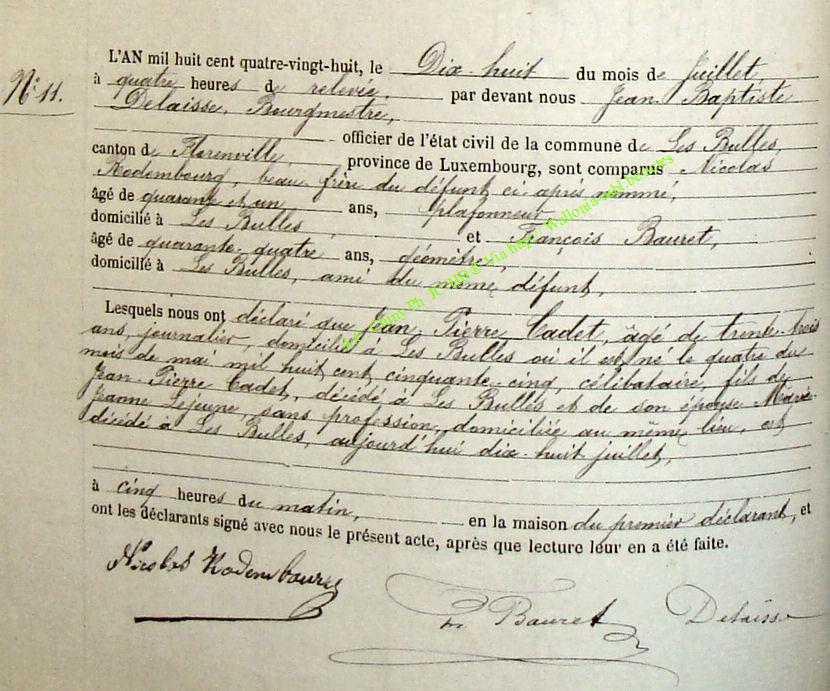 N° 11.
L'AN mil huit cent quatre-vingt-huit, le Dix-huit du mois de Juillet,
à quatre heures de relevée, par devant nous Jean Baptiste
Delaisse, Bourgmestre,
officier de l'état civil de la commune de Les Bulles,
canton de Florenville, province de Luxembourg, sont comparus Nicolas
Rodembourg, beau-frère du défunt ci-après nommé,
âgé de quarante et un ans, plafonneur,
domicilié à Les Bulles et François Bauret,
âgé de quarante-quatre ans, géomètre,
domicilié à Les Bulles, ami du même défunt,
Lesquels nous ont déclaré que Jean-Pierre Cadet, âgé de trente-trois
ans, journalier, domicilié à Les Bulles où il est né le quatre du
mois de mai mil huit cent cinquante-cinq, célibataire, fils de
Jean-Pierre Cadet, décédé à Les Bulles et de son épouse Marie-
Jeanne Lejeune, sans profession, domiciliée au même lieu, est
décédé à Les Bulles, aujourd'hui dix-huit juillet,
à cinq heures du matin, en la maison du premier déclarant, et
ont les déclarants signé avec nous le présent acte, après que lecture leur en a été faite.
Nicolas Rodembourg
F. Bauret Delaisse